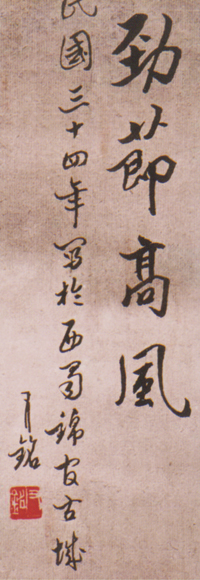 劲節高風
民國三十四年写於西蜀錦官古城